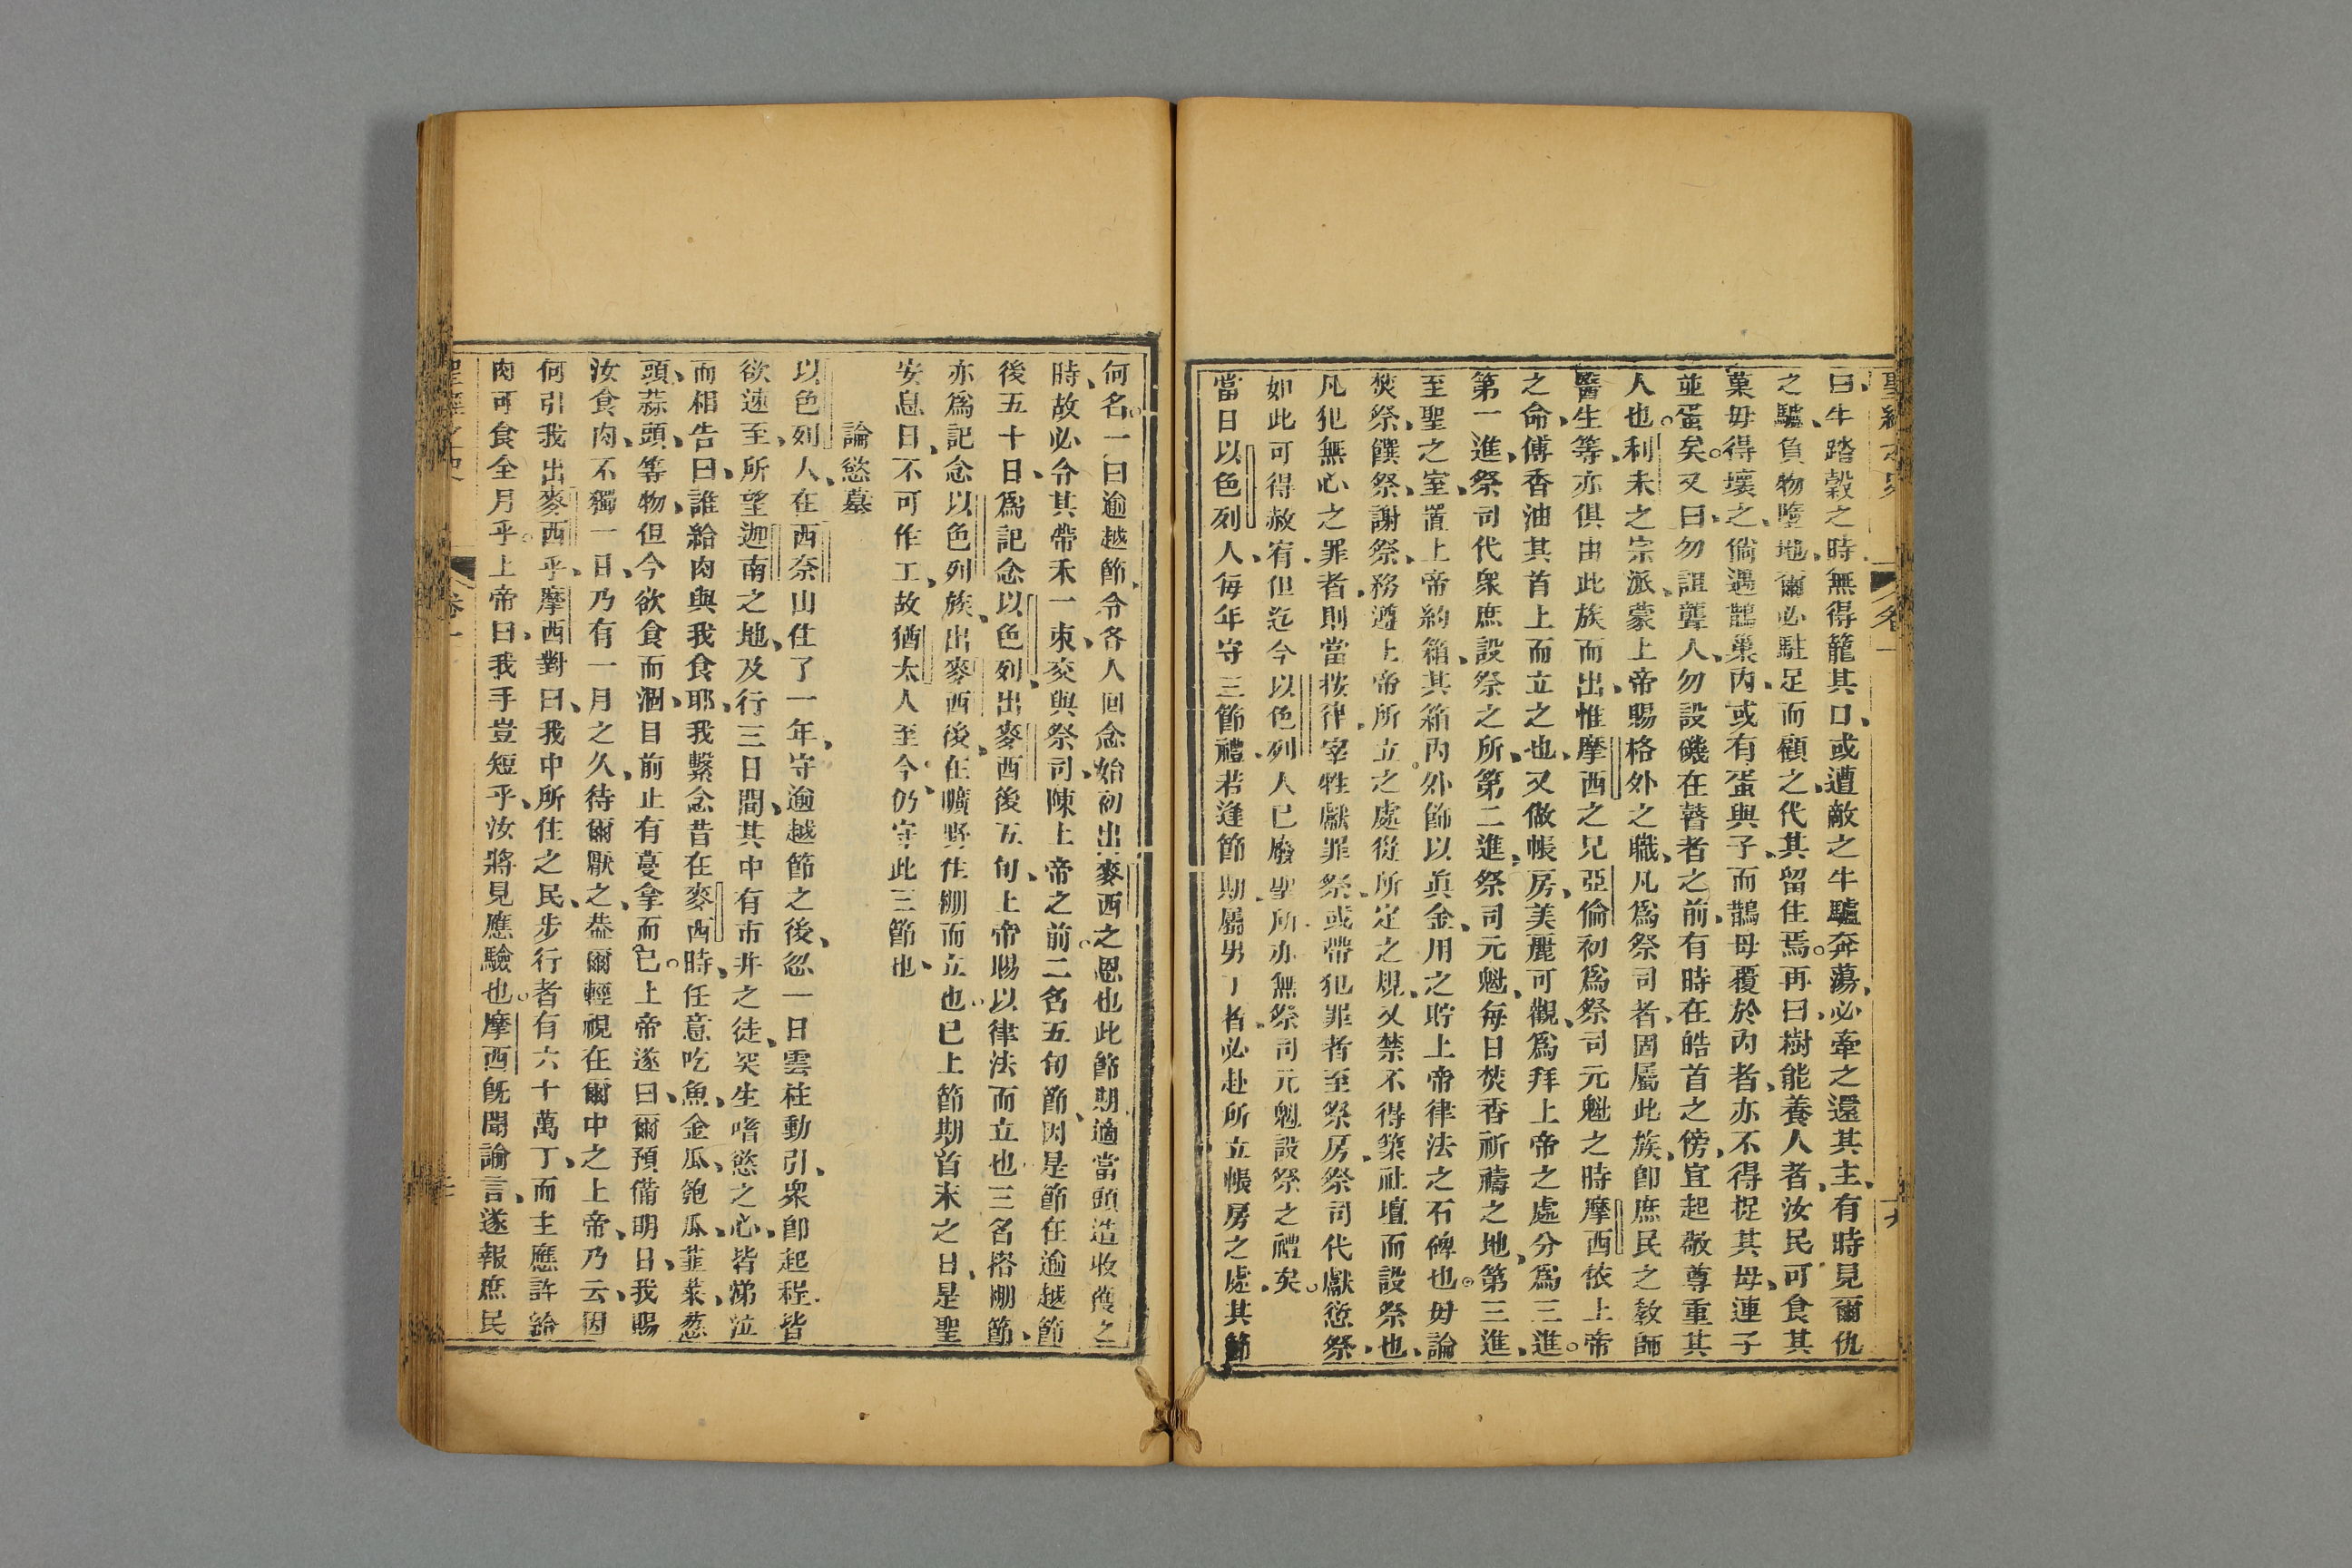 聖經之史 卷一 十九
曰、牛踏穀之時、無得籠其口、或遭敵之牛驢奔蕩、必牽之還其主、有時見爾仇
之驢、負物墮地、爾必駐足而顧之、代其留住焉。再曰、樹能養人者、汝民可食其
菓、毋得壞之、倘遇鵲巢內、或有蛋與子、而鵲母覆於內者、亦不得捉其母、連子
並蛋矣。又曰、勿詛聾人、勿設磯在瞽者之前、有時在皓首之傍、宜起敬尊重其
人也。利未之宗派、蒙上帝賜格外之職、凡為祭司者、固屬此族、卽庶民之教師
醫生等、亦俱由此族而出、惟摩西之兄亞倫初為祭司元魁之時、摩西依上帝
之命、傅香油其首上而立之也、又做帳房、美麗可觀、為拜上帝之處、分為三進。
第一進、祭司代衆庶設祭之所、第二進、祭司元魁、每日焚香祈禱之地、第三進、
至聖之室、置上帝約箱、其箱內外飾以眞金、用之貯上帝律法之石碑也。毋論
焚祭、饌祭、謝祭、務遵上帝所立之處、從所定之規、又禁不得築社壇而設祭也、
凡犯無心之罪者、則當按律、宰牲獻罪祭、或帶犯罪者至祭房、祭司代獻愆祭、
如此可得赦宥、但迄今以色列人已廢聖所、亦無祭司元魁設祭之禮矣。
當日以色列人、每年守三節禮、若逢節期、屬男丁者、必赴所立帳房之處、其節
何名。一曰逾越節、令各人回念始初出麥西之恩也、此節期、適當頭造收穫之
時、故必令其帶禾一束、交與祭司、陳上帝之前。二名五旬節、因是節在逾越節
後五十日、為記念以色列、出麥西後五旬、上帝賜以律法而立也、三名搭棚節、
亦為記念以色列族、出麥西後、在曠野住棚而立也。已上節期、首末之日、是聖
安息日、不可作工、故猶太人至今仍守此三節也、
論慾墓
以色列人、在西奈山住了一年、守逾越節之後、忽一日雲柱動引、衆卽起程、皆
欲速至、所望迦南之地、及行三日間、其中有市井之徒、突生嗜慾之心、皆涕泣
而相告曰、誰給肉與我食耶、我繫念昔在麥西時、任意吃魚、金瓜、匏瓜、韮菜、葱
頭、蒜頭、等物、但今欲食而涸、目前止有蔓拿而已。上帝遂曰、爾預備明日、我賜
汝食肉、不獨一日、乃有一月之久、待爾厭之、葢爾輕視在爾中之上帝、乃云、因
何引我出麥西乎、摩西對曰、我中所住之民、步行者有六十萬丁、而主應許給
肉可食全月乎。上帝曰、我手豈短乎、汝將見應驗也。摩西旣聞諭言、遂報庶民
聖經之史 卷一